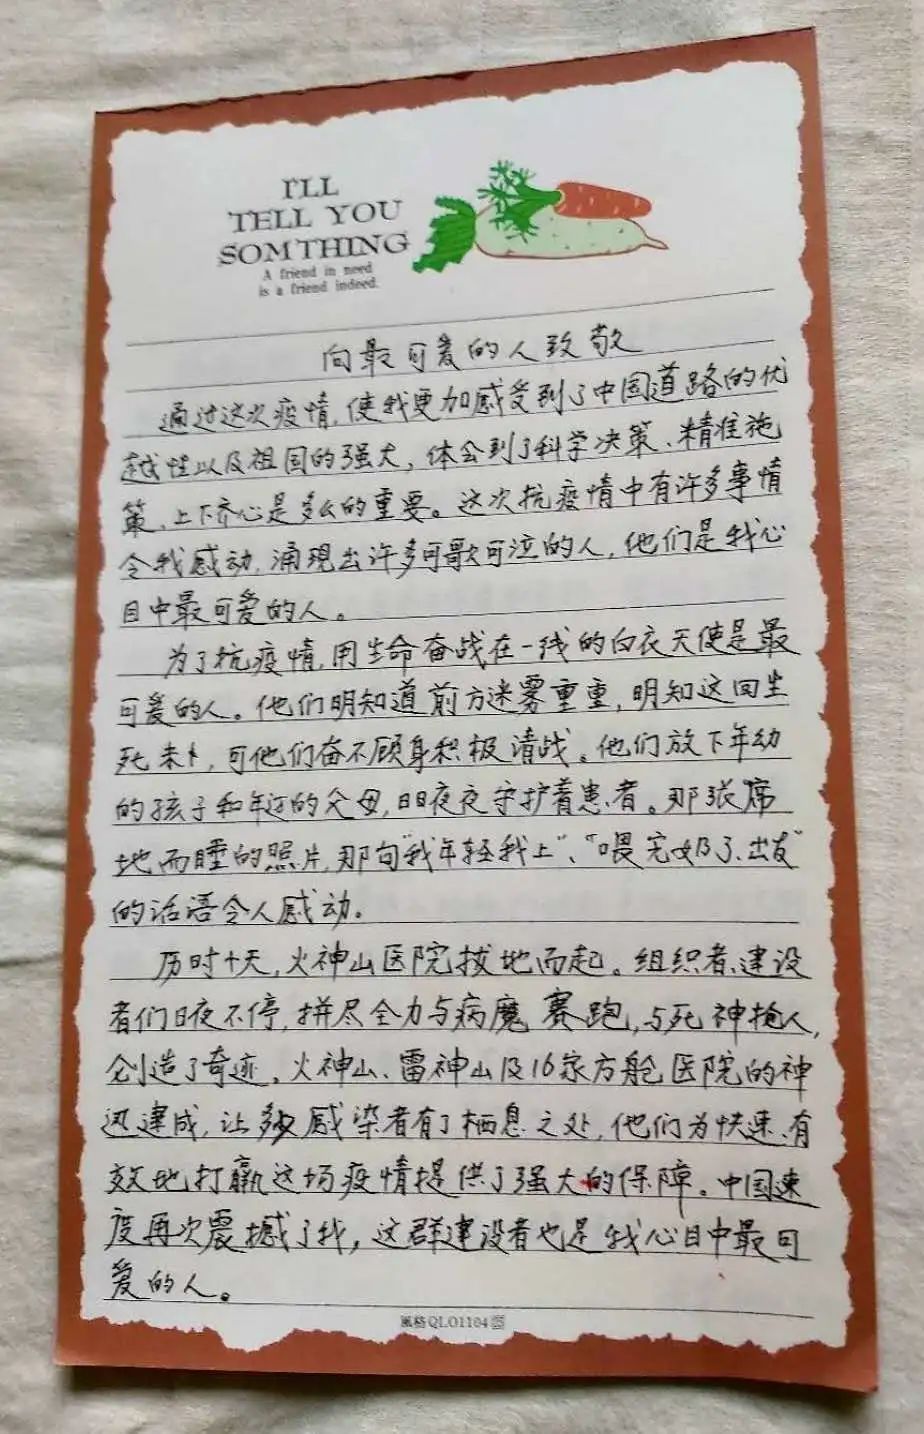 I'LL
TELL YOU
SOMTHING
A friend in need
is a friend indeed.
向最可爱的人致敬
通过这次疫情,使我更加感受到了中国道路的优
越性以及祖国的强大,体会到了科学决策、精准施
策、上下齐心是多么的重要。这次抗疫情中有许多事情
令我感动,涌现出许多可歌可泣的人,他们是我心
目中最可爱的人。
为了抗疫情,用生命奋战在一线的白衣天使是最
可爱的人。他们明知道前方迷雾重重,明知这回生
死未卜,可他们奋不顾身积极请战。他们放下年幼
的孩子和年迈的父母,日日夜夜守护着患者。那张席
地而睡的照片,那句“我年轻我上”、“喂完奶了、出发”
的话语令人感动。
历时十天,火神山医院拔地而起。组织者、建设
者们日夜不停,拼尽全力与病魔赛跑,与死神抢人,
创造了奇迹。火神山、雷神山及16家方舱医院的神
迅建成,让多少感染者有了栖息之处,他们为快速、有
效地打赢这场疫情提供了强大的保障。中国速
度再次震撼了我,这群建设者也是我心目中最可
爱的人。
風格QL01104